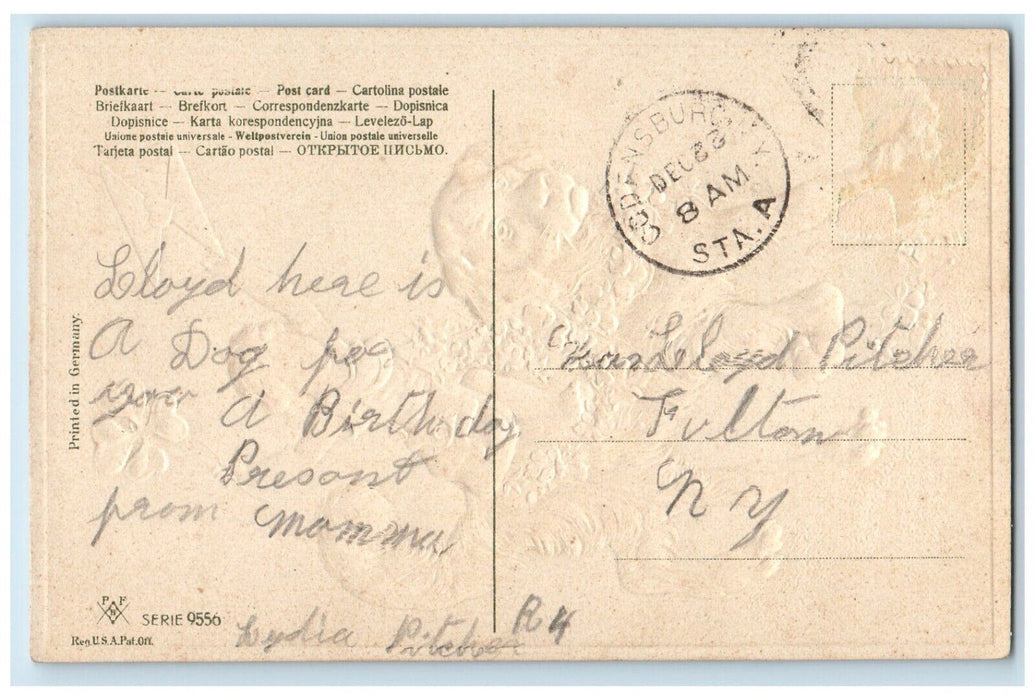 Postkarte — Carte postale — Post card — Cartolina postale
Briefkaart — Brefkort — Correspondenzkarte — Dopisnica
Dopisnice — Karta korespondencyjna — Levelező-Lap
Unione postale universale - Weltpostverein - Union postale universelle
Tarjeta postal — Cartão postal — ОТКРЫТОЕ ПИСЬМО.
OGDENSBURG, N.Y.
DEC 23
8 AM
STA. A
Lloyd here is
A Dog for
you A Birthday
Presant
from Momma
Lloyd Pitcher
Fulton
N Y
Printed in Germany.
P F
B
SERIE 9556
Reg. U.S.A. Pat. Off.
Lydia Pitcher R4